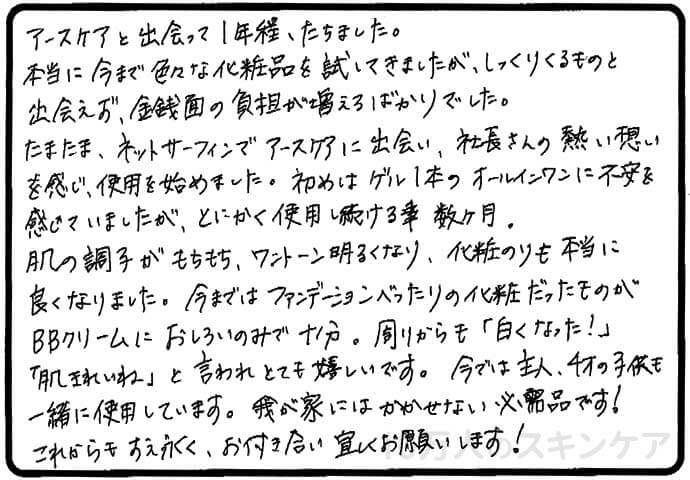 アースケアと出会って1年程、たちました。
本当に今まで色々な化粧品を試してきましたが、しっくりくるものと
出会えず、金銭面の負担が増えるばかりでした。
たまたま、ネットサーフィンでアースケアに出会い、社長さんの熱い想い
を感じ、使用を始めました。初めはゲル1本のオールインワンに不安を
感じていましたが、とにかく使用し続ける事数ヶ月。
肌の調子がもちもち、ワントーン明るくなり、化粧のりも本当に
良くなりました。今まではファンデーションべったりの化粧だったものが
BBクリームにおしろいのみで十分。周りからも「白くなった!」
「肌きれいね」と言われとても嬉しいです。今では主人、4才の子供も
一緒に使用しています。我が家にはかかせない必需品です!
これからもすえ永く、お付き合い宜しくお願いします!
10万人のスキンケア